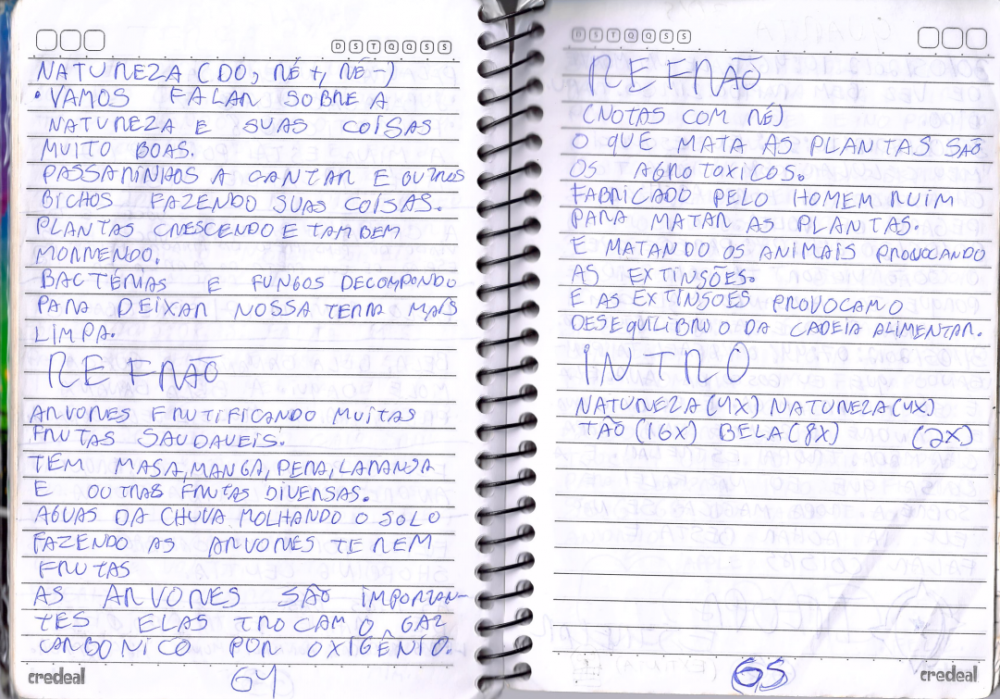 D S T Q Q S S
NATUREZA (DÓ, RÉ+, RÉ-)
• VAMOS FALAR SOBRE A
NATUREZA E SUAS COISAS
MUITO BOAS.
PASSARINHOS A CANTAR E OUTROS
BICHOS FAZENDO SUAS COISAS.
PLANTAS CRESCENDO E TAMBEM
MORRENDO.
BACTÉRIAS E FUNGOS DECOMPONDO
PARA DEIXAR NOSSA TERRA MAIS
LIMPA.
REFRÃO
ARVORES FRUTIFICANDO MUITAS
FRUTAS SAUDAVEIS.
TEM MASA, MANGA, PERA, LARANJA
E OUTRAS FRUTAS DIVERSAS.
AGUAS DA CHUVA MOLHANDO O SOLO
FAZENDO AS ARVORES TEREM
FRUTAS
AS ARVORES SÃO IMPORTAN-
TES ELAS TROCAM O GAZ
CARBONICO POR OXIGÊNIO.
credeal
64
D S T Q Q S S
REFRÃO
(NOTAS COM RÉ)
O QUE MATA AS PLANTAS SÃO
OS AGROTOXICOS.
FABRICADO PELO HOMEM RUIM
PARA MATAR AS PLANTAS.
E MATANDO OS ANIMAIS PROVOCANDO
AS EXTINSÕES.
E AS EXTINSOES PROVOCAM O
DESEQUILIBRIO DA CADEIA ALIMENTAR.
INTRO
NATUREZA (4X) NATUREZA (4X)
TÃO (16X) BELA (8X) (2X)
65
credeal